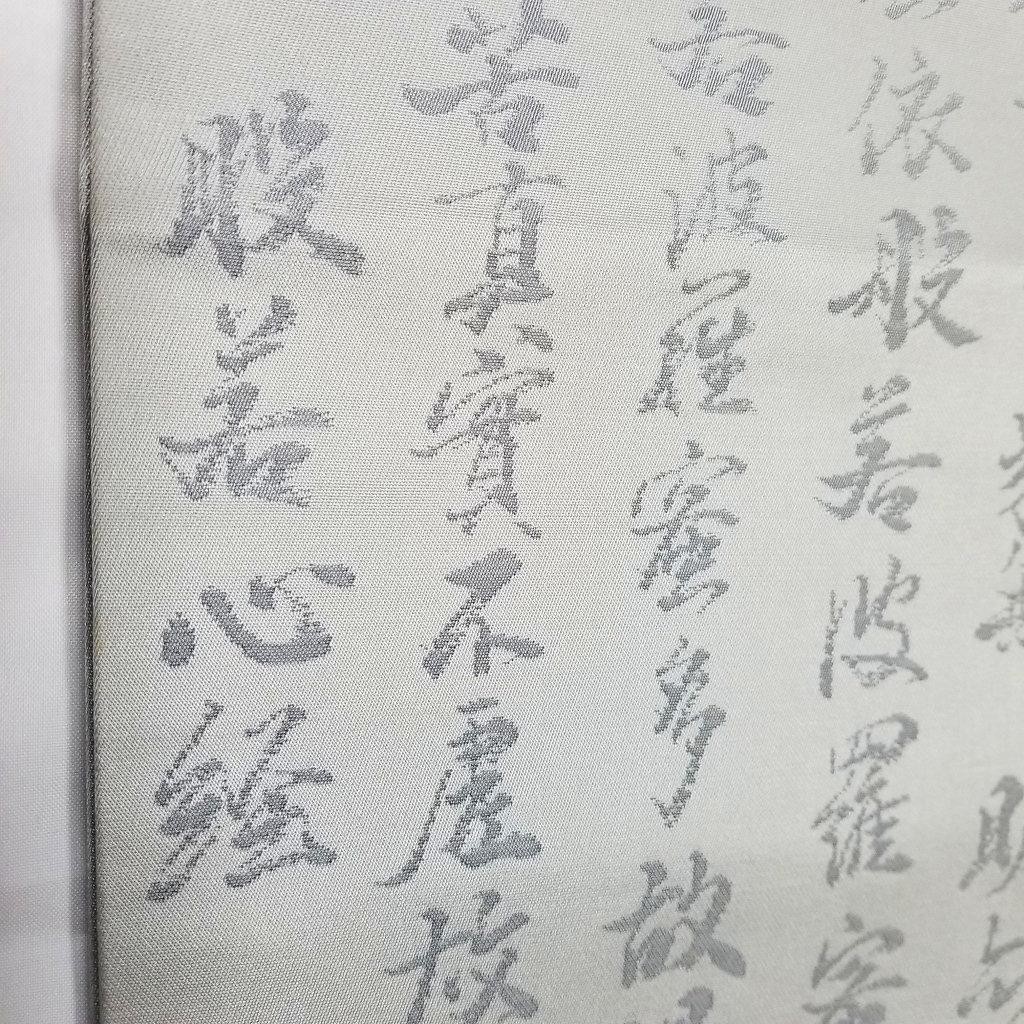 依般若波羅蜜
若波羅蜜多故
苦真實不虛故
般若心經